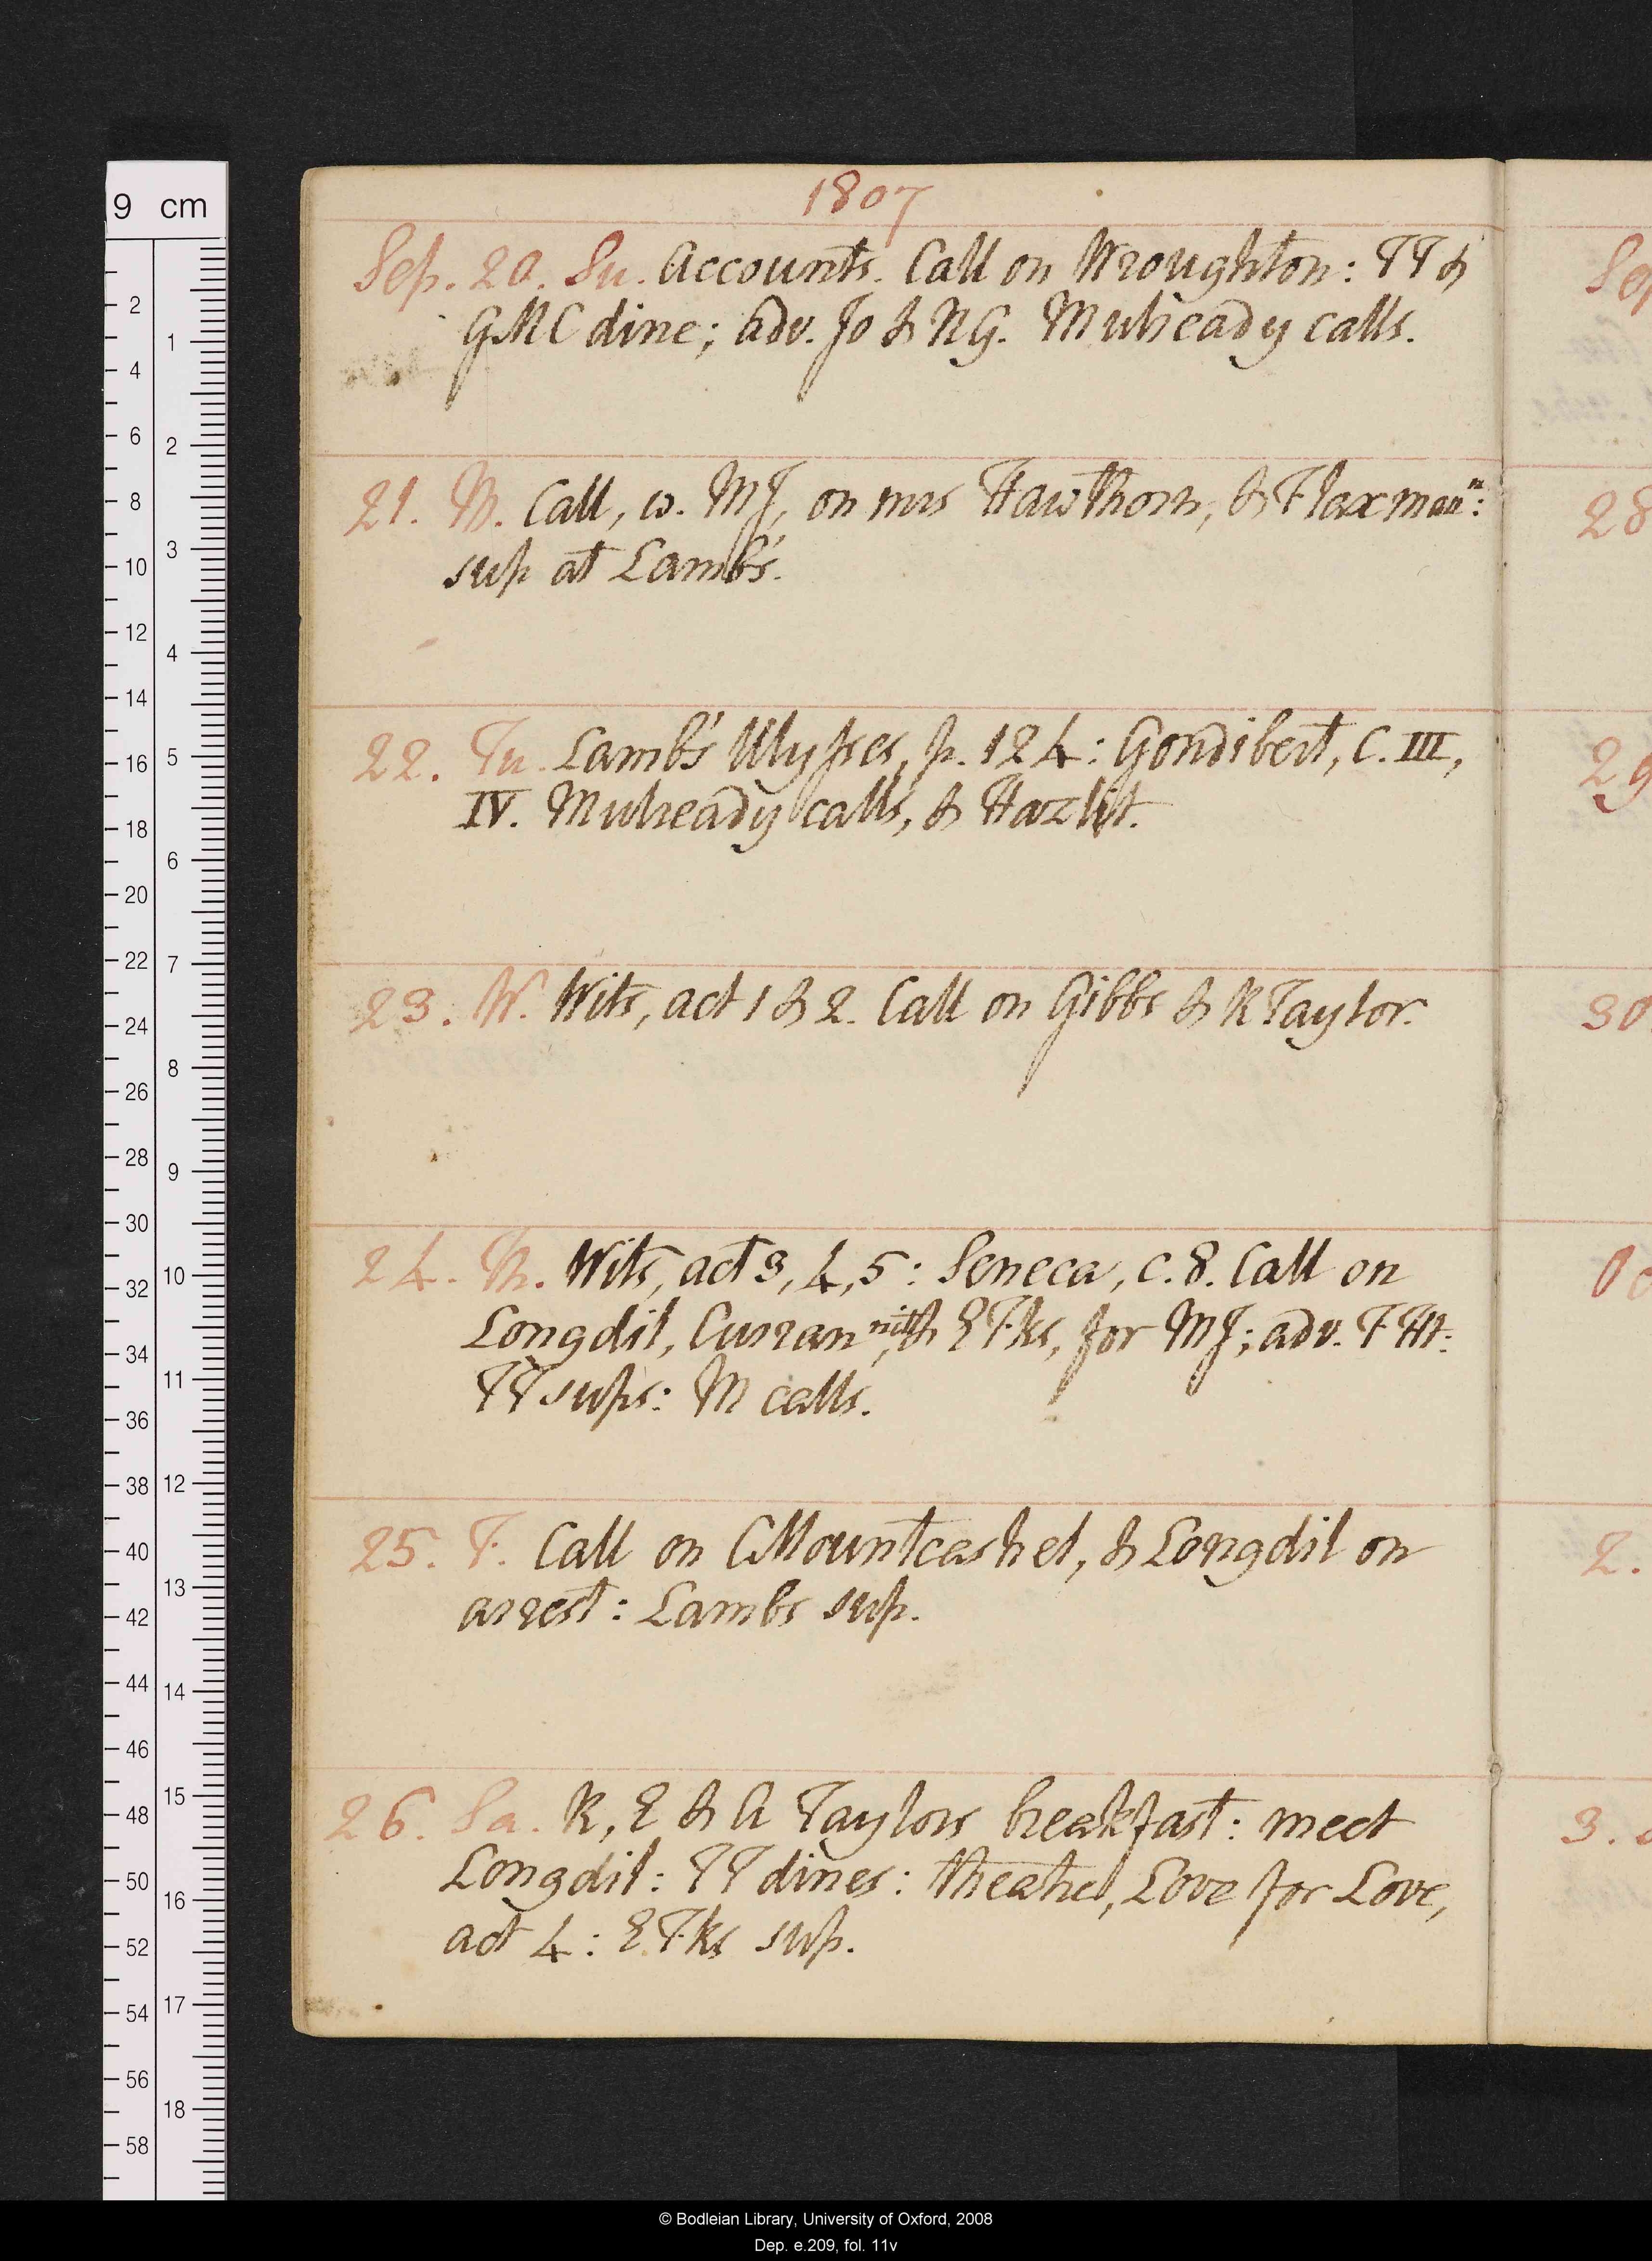 1807
Sep. 20. Su. Accounts. Call on Wroughton: TT &
GMC dine; adv. Jo & NG. Mulready calls.
21. M. Call, w. MJ, on mrs Hawthorn, & Flaxman n:
sup at Lamb's.
22. Tu. Lamb's Ulysses, p. 124: Gondibert, C. III,
IV. Mulready calls, & Hazlit.
23. W. Wits, act 1 & 2. Call on Gibbs & R Taylor.
24. Th. Wits, act 3, 4, 5: Seneca, c. 8. Call on
Longdil, Curran nit, & E Fks, for MJ; adv. F Ht:
TT sups: M calls.
25. F. Call on CMountcashel, & Longdil on
arrest: Lambs sup.
26. Sa. R, E & A Taylors breakfast: meet
Longdil: TT dines: theatre, Love for Love,
act 4: E Fks sup.
Sep
28
29
30
2.
3.
9 cm
2 4 6 8 10 12 14 16 18 20 22 24 26 28 30 32 34 36 38 40 42 44 46 48 50 52 54 56 58
1 2 3 4 5 6 7 8 9 10 11 12 13 14 15 16 17 18
© Bodleian Library, University of Oxford, 2008
Dep. e.209, fol. 11v